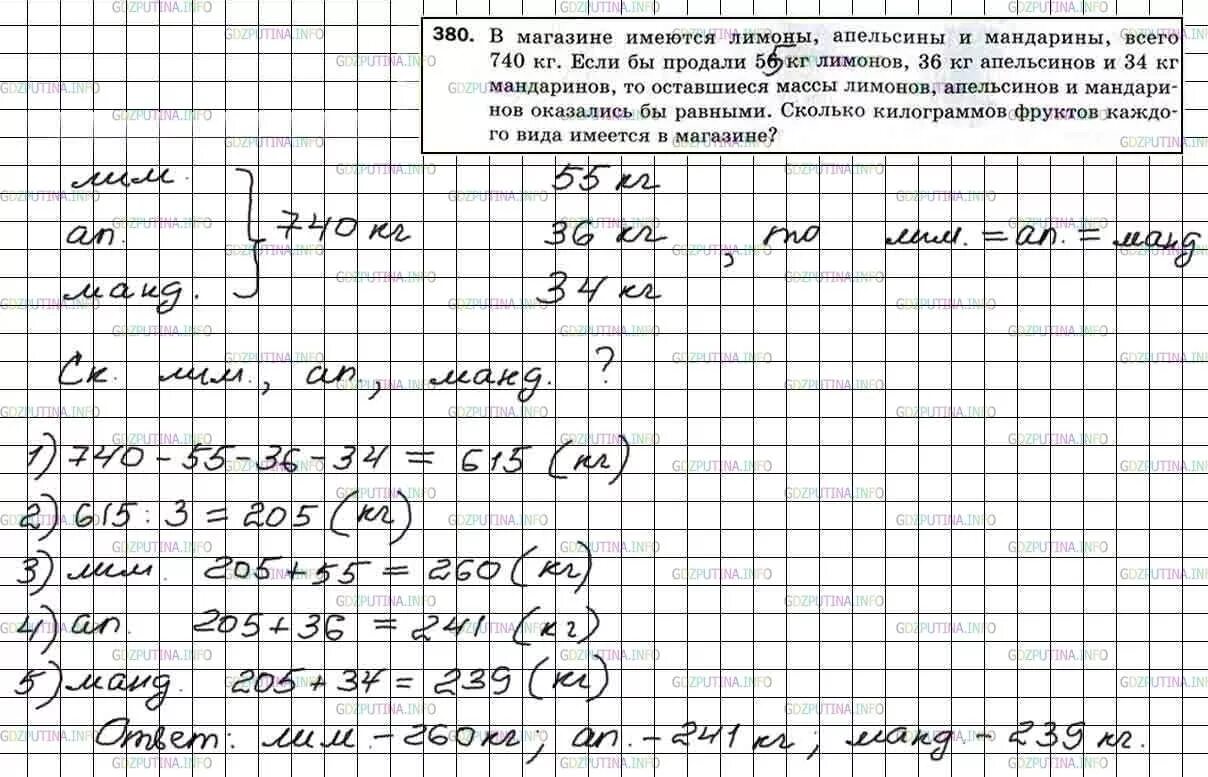 380. В магазине имеются лимоны, апельсины и мандарины, всего
740 кг. Если бы продали 55 кг лимонов, 36 кг апельсинов и 34 кг
мандаринов, то оставшиеся массы лимонов, апельсинов и мандари-
нов оказались бы равными. Сколько килограммов фруктов каждо-
го вида имеется в магазине?
лим. 55 кг
ап. 740 кг 36 кг, то лим. = ап. = манд
манд. 34 кг
Ск. лим., ап., манд. ?
1) 740 - 55 - 36 - 34 = 615 (кг)
2) 615 : 3 = 205 (кг)
3) лим. 205 + 55 = 260 (кг)
4) ап. 205 + 36 = 241 (кг)
5) манд. 205 + 34 = 239 (кг)
Ответ: лим. - 260 кг; ап. - 241 кг; манд - 239 кг.
GDZPUTINA.INFO